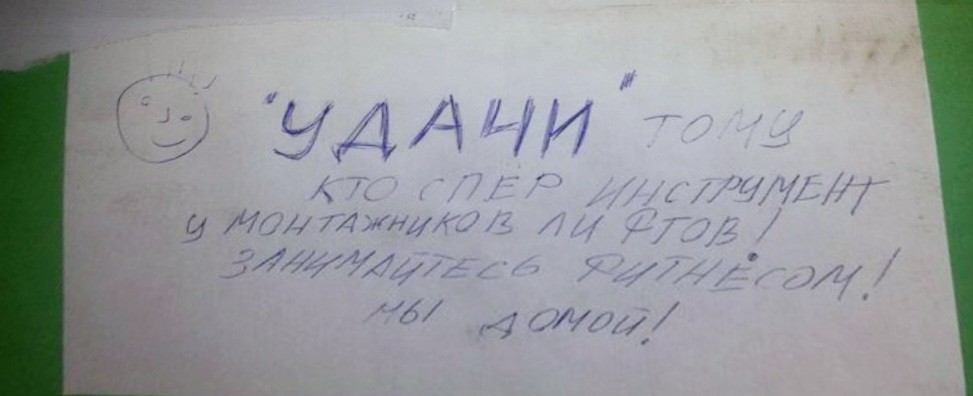 "УДАЧИ" ТОМУ
КТО СПЁР ИНСТРУМЕНТ
У МОНТАЖНИКОВ ЛИФТОВ!
ЗАНИМАЙТЕСЬ ФИТНЕСОМ!
МЫ ДОМОЙ!